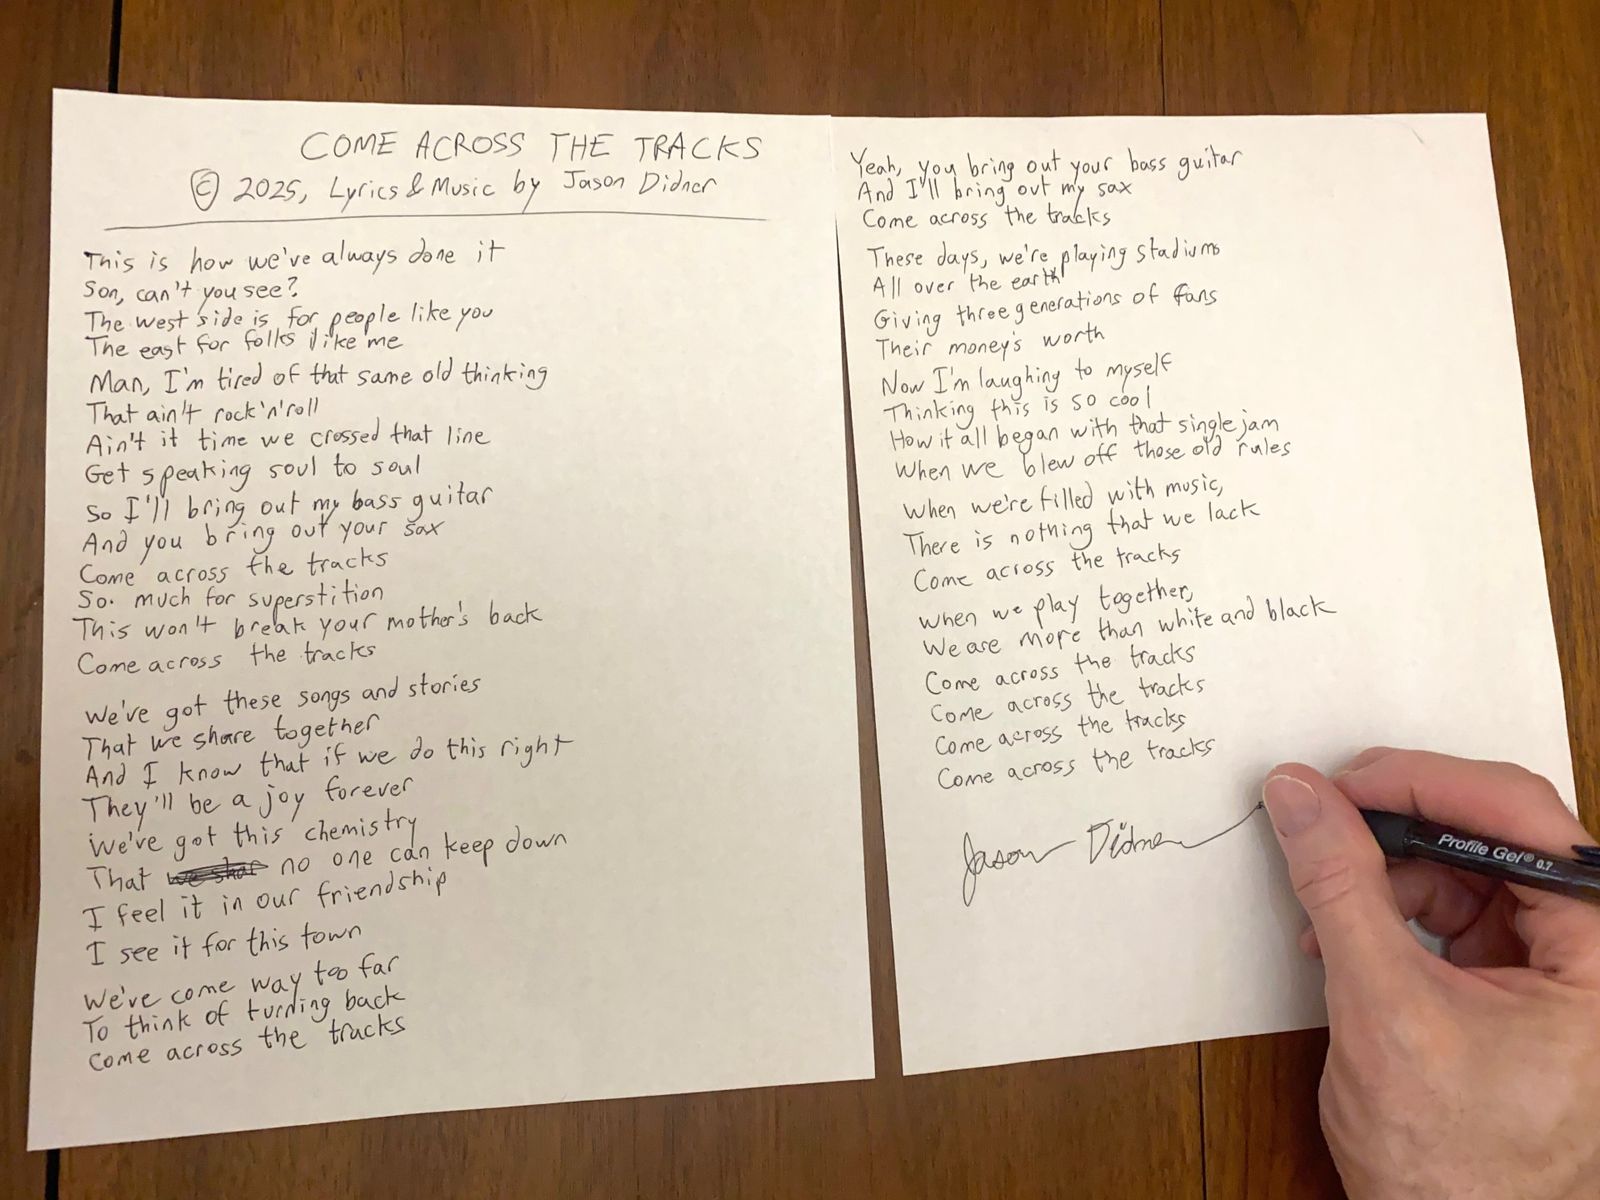 COME ACROSS THE TRACKS
© 2025, Lyrics & Music by Jason Didner
This is how we've always done it
Son, can't you see?
The west side is for people like you
The east for folks like me
Man, I'm tired of that same old thinking
That ain't rock'n'roll
Ain't it time we crossed that line
Get speaking soul to soul
So I'll bring out my bass guitar
And you bring out your sax
Come across the tracks
So much for superstition
This won't break your mother's back
Come across the tracks
We've got these songs and stories
That we share together
And I know that if we do this right
They'll be a joy forever
We've got this chemistry
That no one can keep down
I feel it in our friendship
I see it for this town
We've come way too far
To think of turning back
Come across the tracks
Yeah, you bring out your bass guitar
And I'll bring out my sax
Come across the tracks
These days, we're playing stadiums
All over the earth
Giving three generations of fans
Their money's worth
Now I'm laughing to myself
Thinking this is so cool
How it all began with that single jam
When we blew off those old rules
When we're filled with music,
There is nothing that we lack
Come across the tracks
When we play together,
We are more than white and black
Come across the tracks
Come across the tracks
Come across the tracks
Come across the tracks
Jason Didner
Profile Gel® 0.7